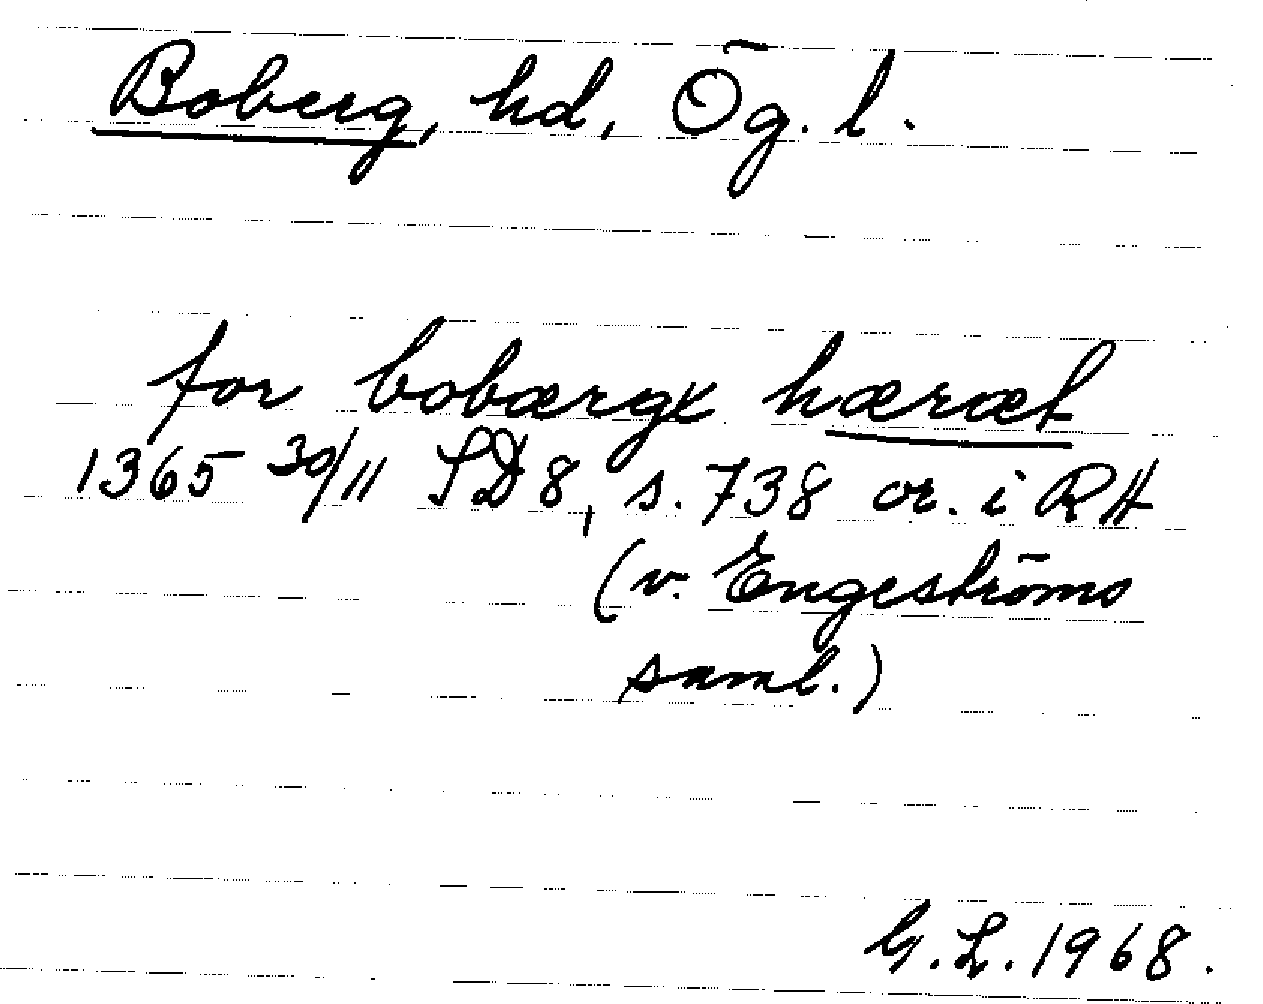 Boberg, hd, Ög. l.
for bobærgx hæræt
1365 30/11 SD 8, s. 738 or. i RA
(v. Engeströms
saml.)
G. L. 1968.